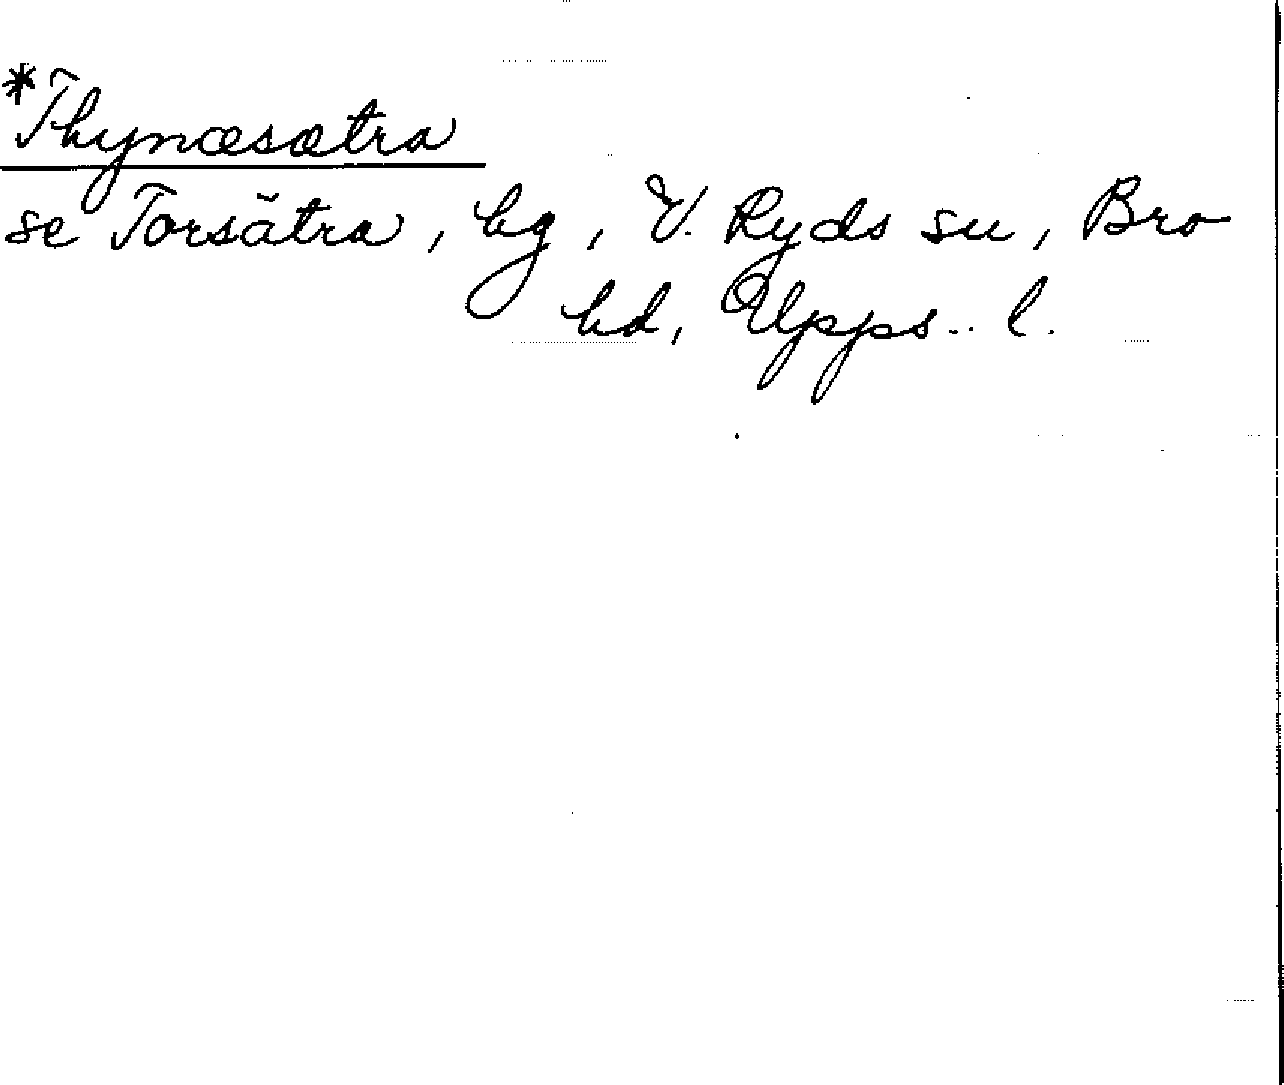 *Thynæsætra
se Torsätra, hg, V. Ryds sn, Bro
hd, Upps.. l.